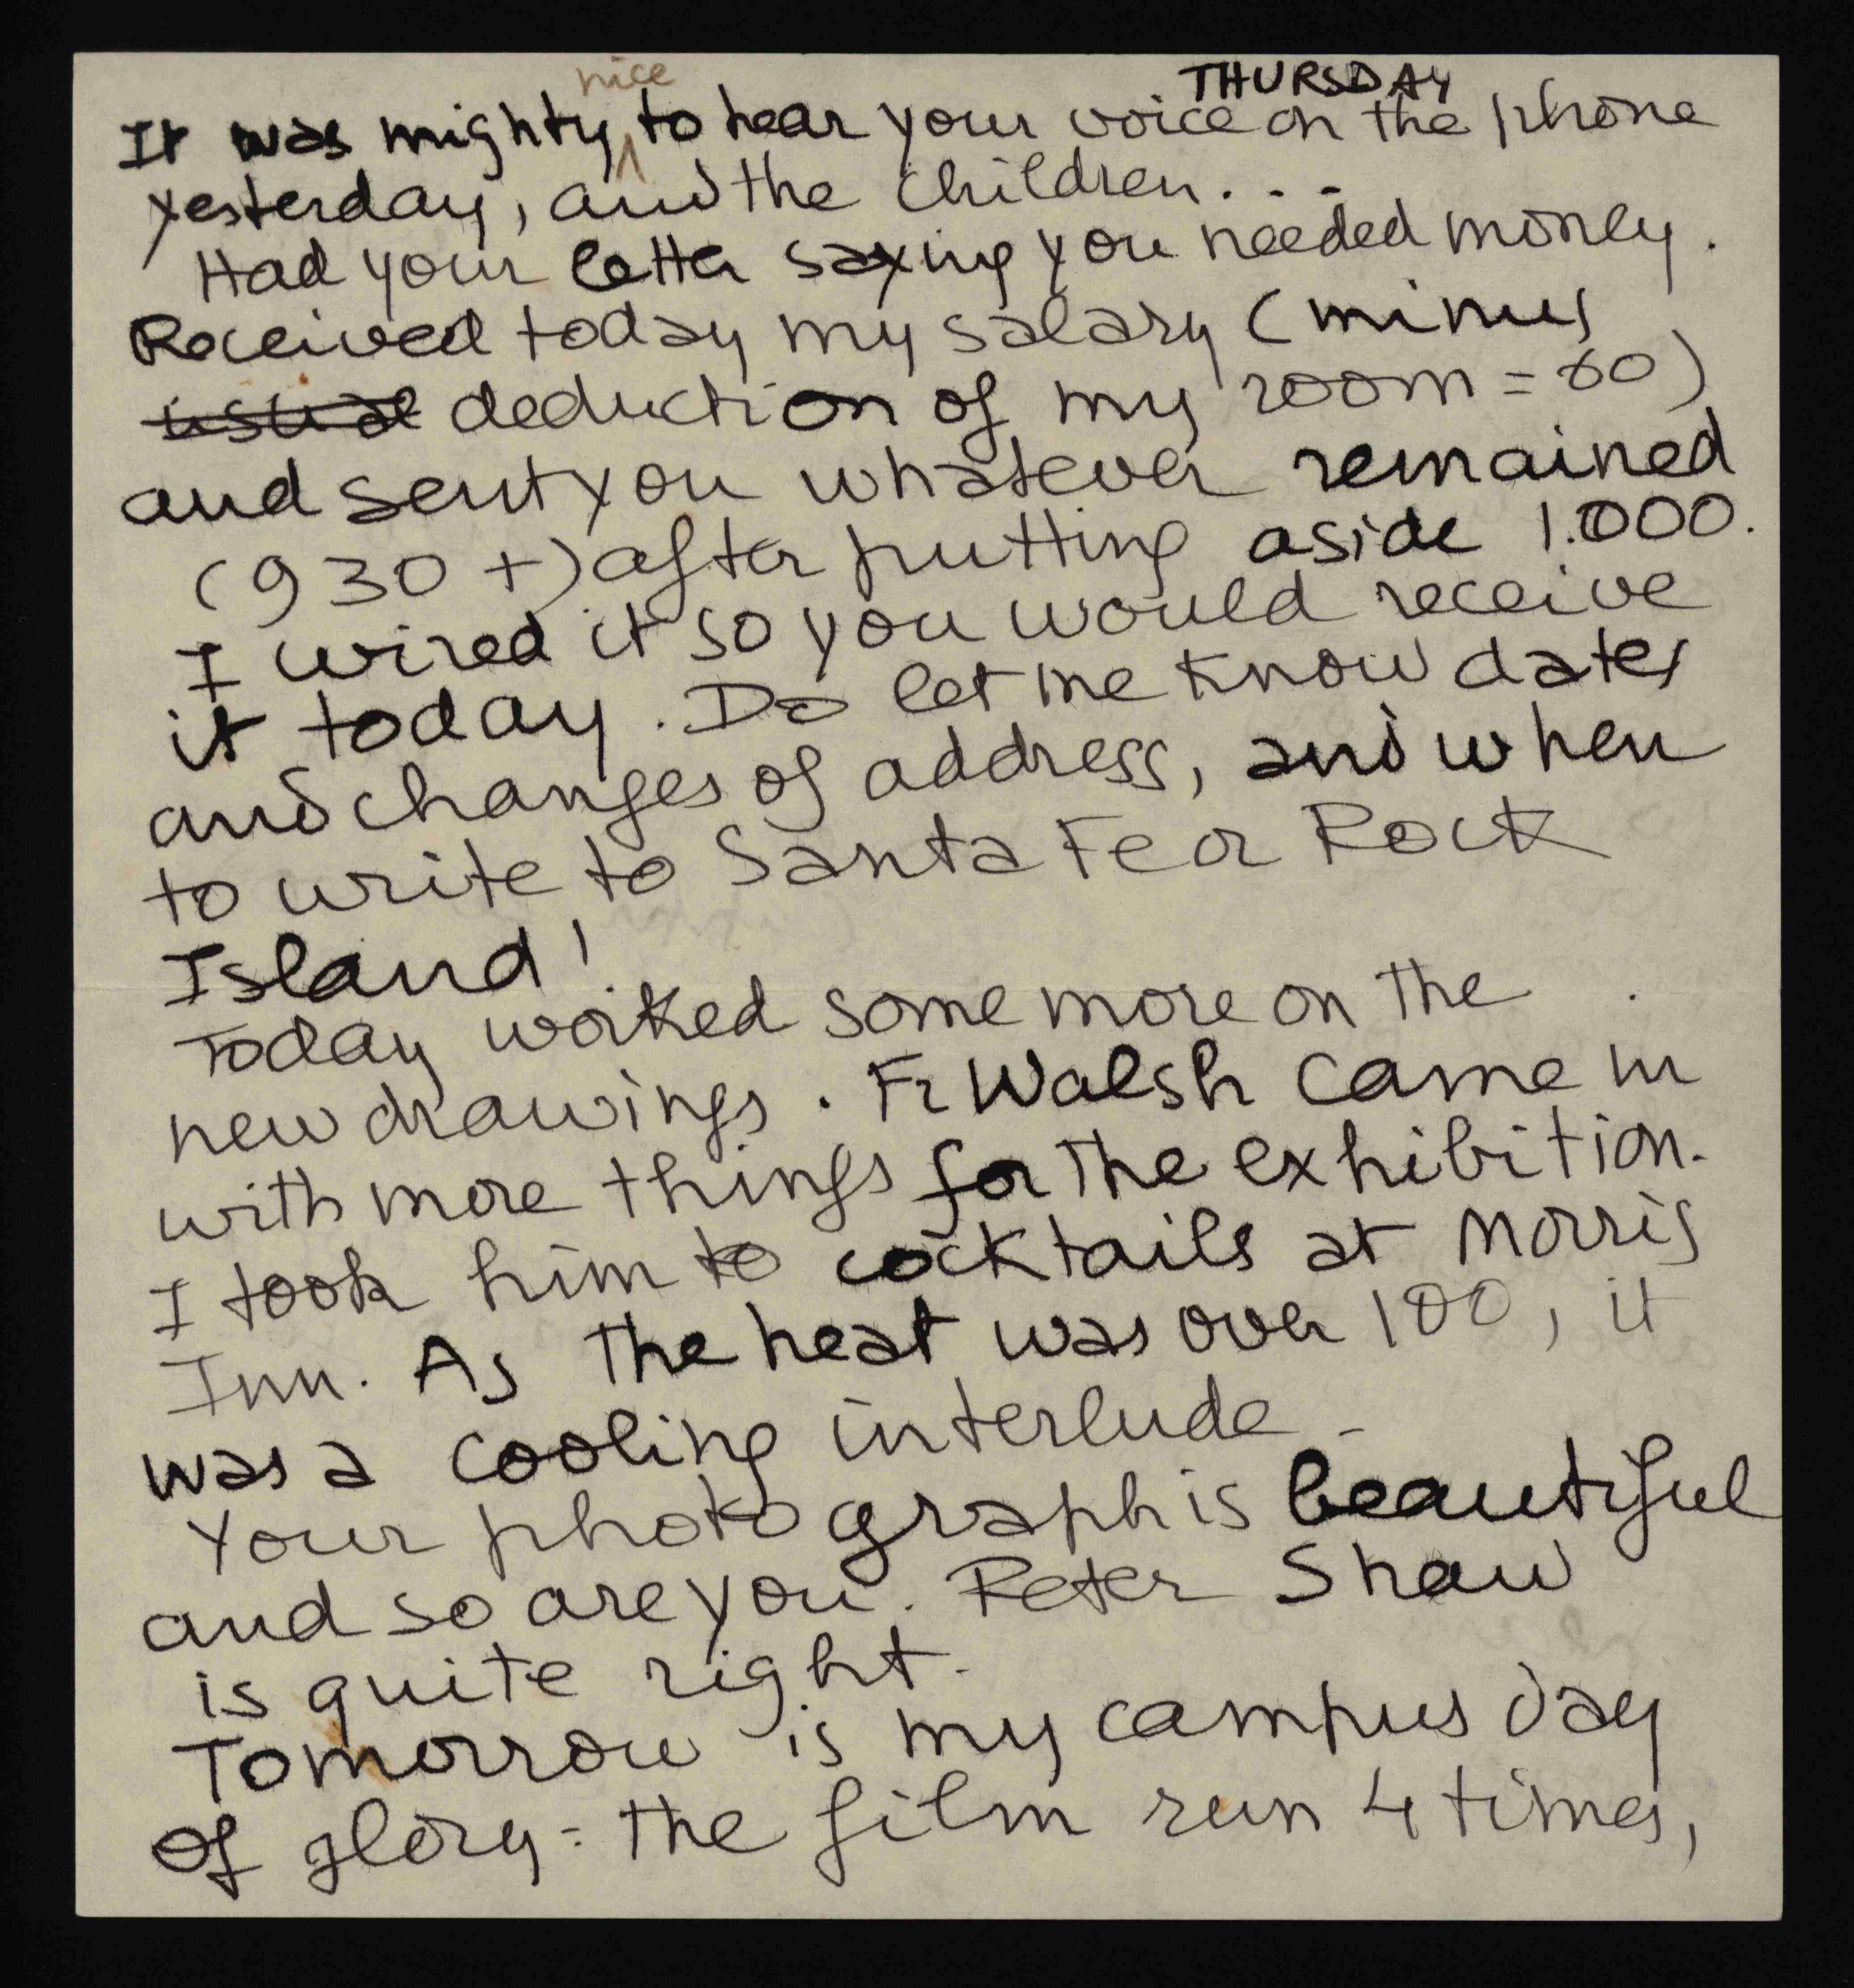 THURSDAY
It was mighty nice to hear your voice on the phone
yesterday, and the children. . .
Had your letter saying you needed money.
Received today my salary (minus
usual deduction of my room = 60)
and sent you whatever remained
(930 +) after putting aside 1.000.
I wired it so you would receive
it today. Do let me know dates
and changes of address, and when
to write to Santa Fe or Rock
Island!
Today worked some more on the
new drawings. Fr Walsh came in
with more things for the exhibition.
I took him to cocktails at Morris
Inn. As the heat was over 100, it
was a cooling interlude -
Your photograph is beautiful
and so are you. Peter Shaw
is quite right.
Tomorrow is my campus day
of glory = the film run 4 times,